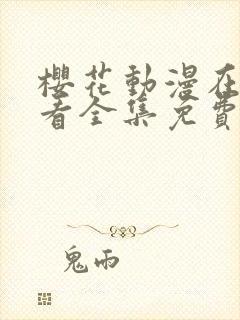 櫻花動漫在
看全集免費
鬼雨